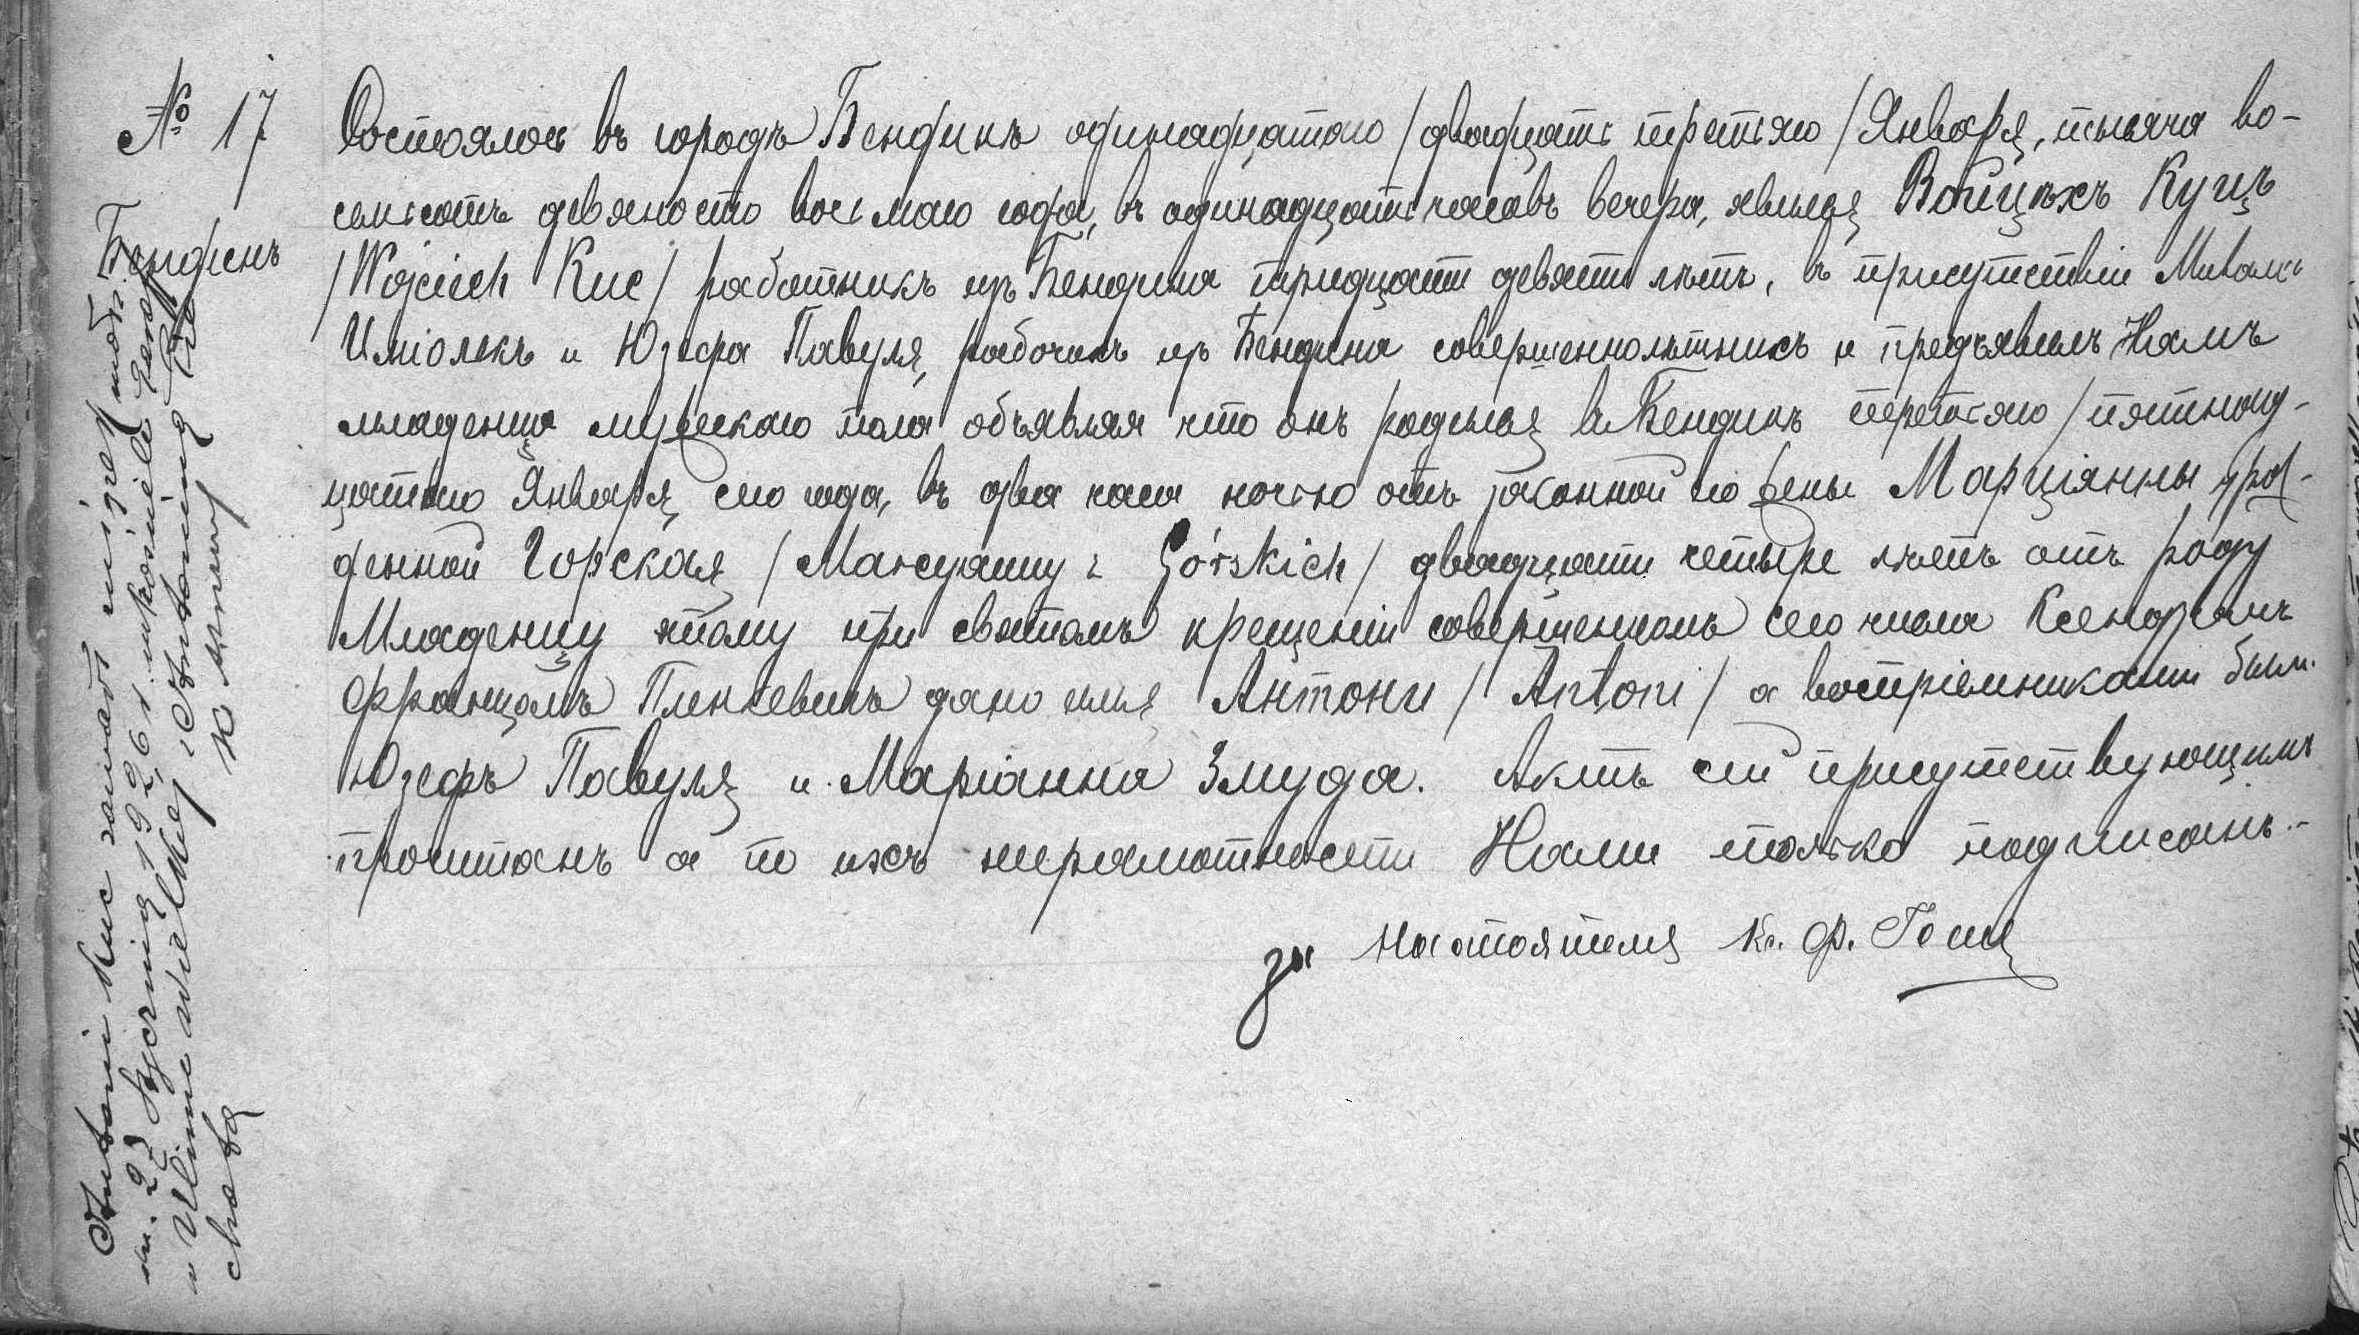 № 17
Бендинъ
Состоялось въ городѣ Бендинѣ одинадцатаго /двадцать третьяго/ Января, тысяча во-
семьсотъ девяносто восьмаго года, въ одинадцать часовъ вечера, явился Войцѣхъ Куцъ
/Wojciech Kuc/ работникъ изъ Бендина тридцати девяти лѣтъ, въ присутствіи
Имiолекъ и Юзефа Павуля, рабочихъ изъ Бендина совершеннолѣтнихъ и предъявилъ Намъ
младенца мужескаго пола объявляя что онъ родился въ Бендинѣ третьяго /пятнад-
цатаго Января, сего года, въ два часа ночью отъ законной его жены Марціянны урож-
денной Горская / z Górskich/ двадцати четыре лѣтъ отъ роду
Младенцу этому при святомъ крещеніи совершенномъ сего числа Ксендзомъ
Францомъ дано имя Антони /Antoni/ а воспріемниками были
Юзефъ Павуля и Маріанна Змуда. Актъ сей присутствующимъ
прочитанъ а по ихъ неграмотности Нами только подписанъ.-
за Настоятеля Кс. Ф.
Antoni Kuc zawarł związek małż.
dn. 23 Stycznia 1926 r. w kościele
w z Antoniną